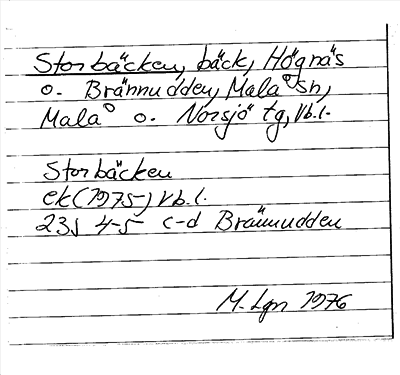 Storbäcken, bäck, Högnäs
o. Brännudden, Malå sn,
Malå o. Norsjö tg, Vb.l.
Storbäcken
ek (1975) Vb.l.
23J 4-5 c-d Brännudden
M. Lgn 1976